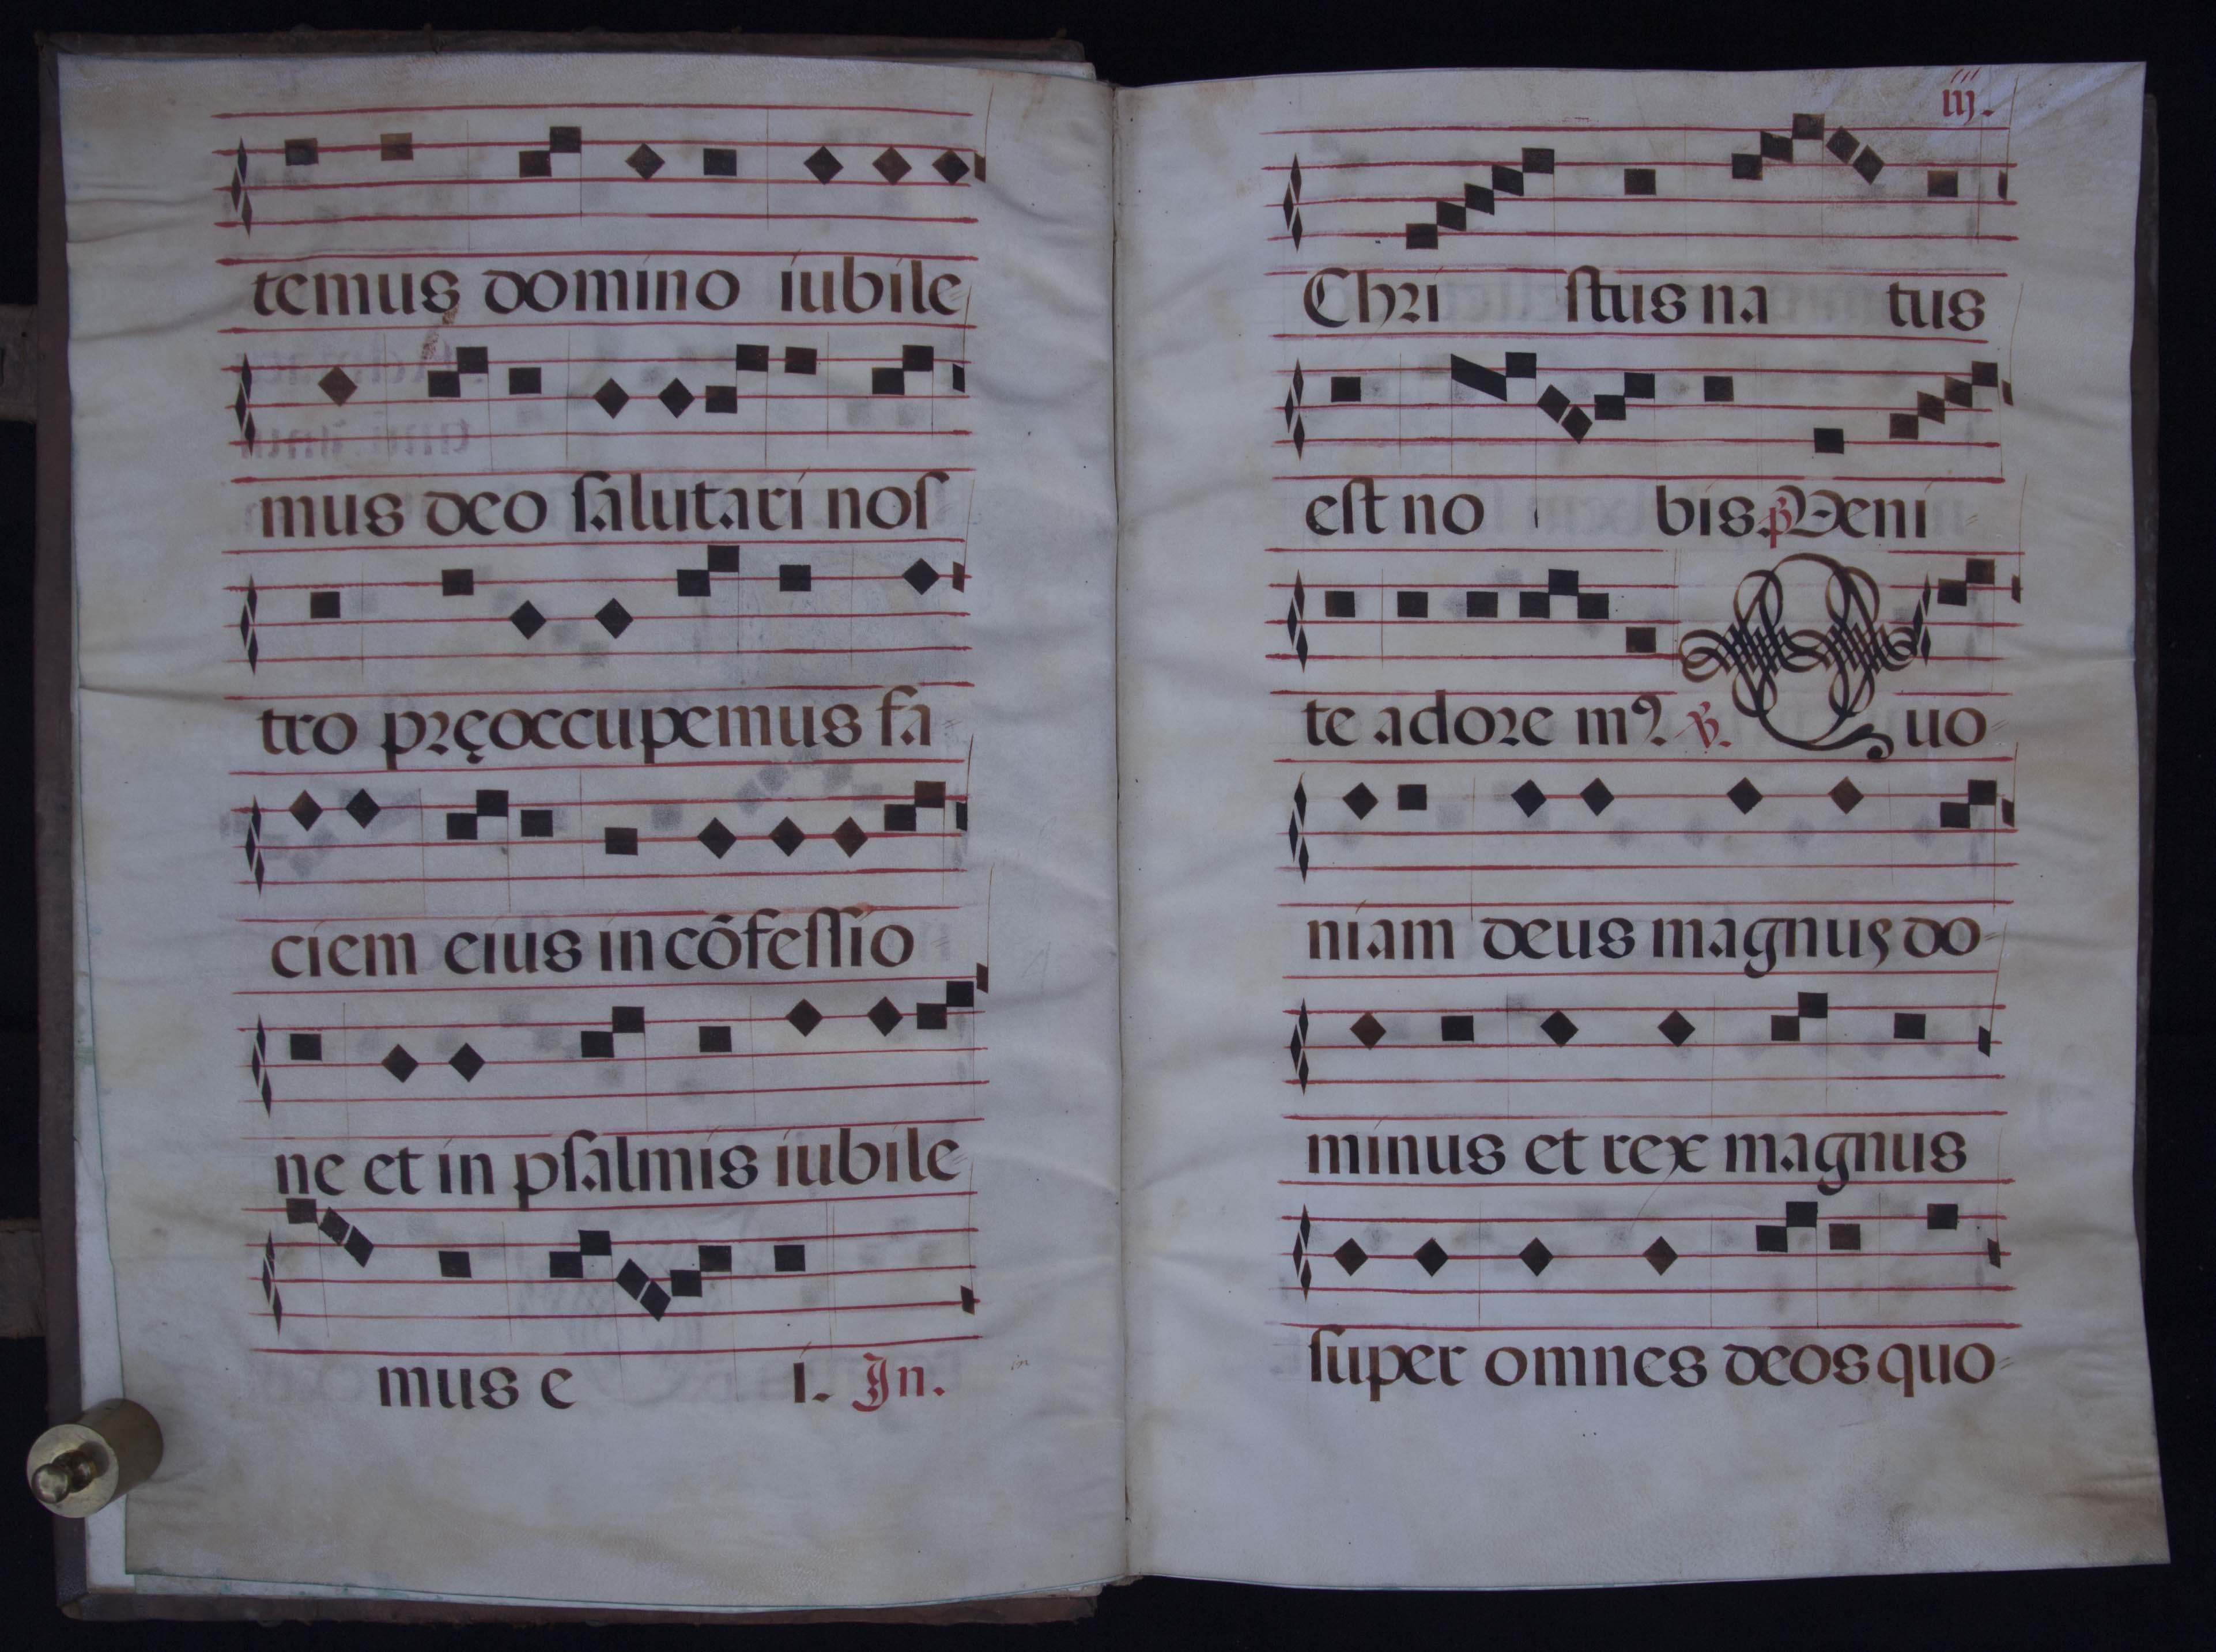 temus domino iubile
mus deo ſalutari noſ
tro pręoccupemus fa
ciem eius in cõfeſſio
ne et in pſalmis iubile
mus e i. In.
iij.
Chri ſtus na tus
eſt no bis. p̄ Veni
te adore mꝰ. ℣. Quo
niam deus magnus do
minus et rex magnus
ſuper omnes deos quo